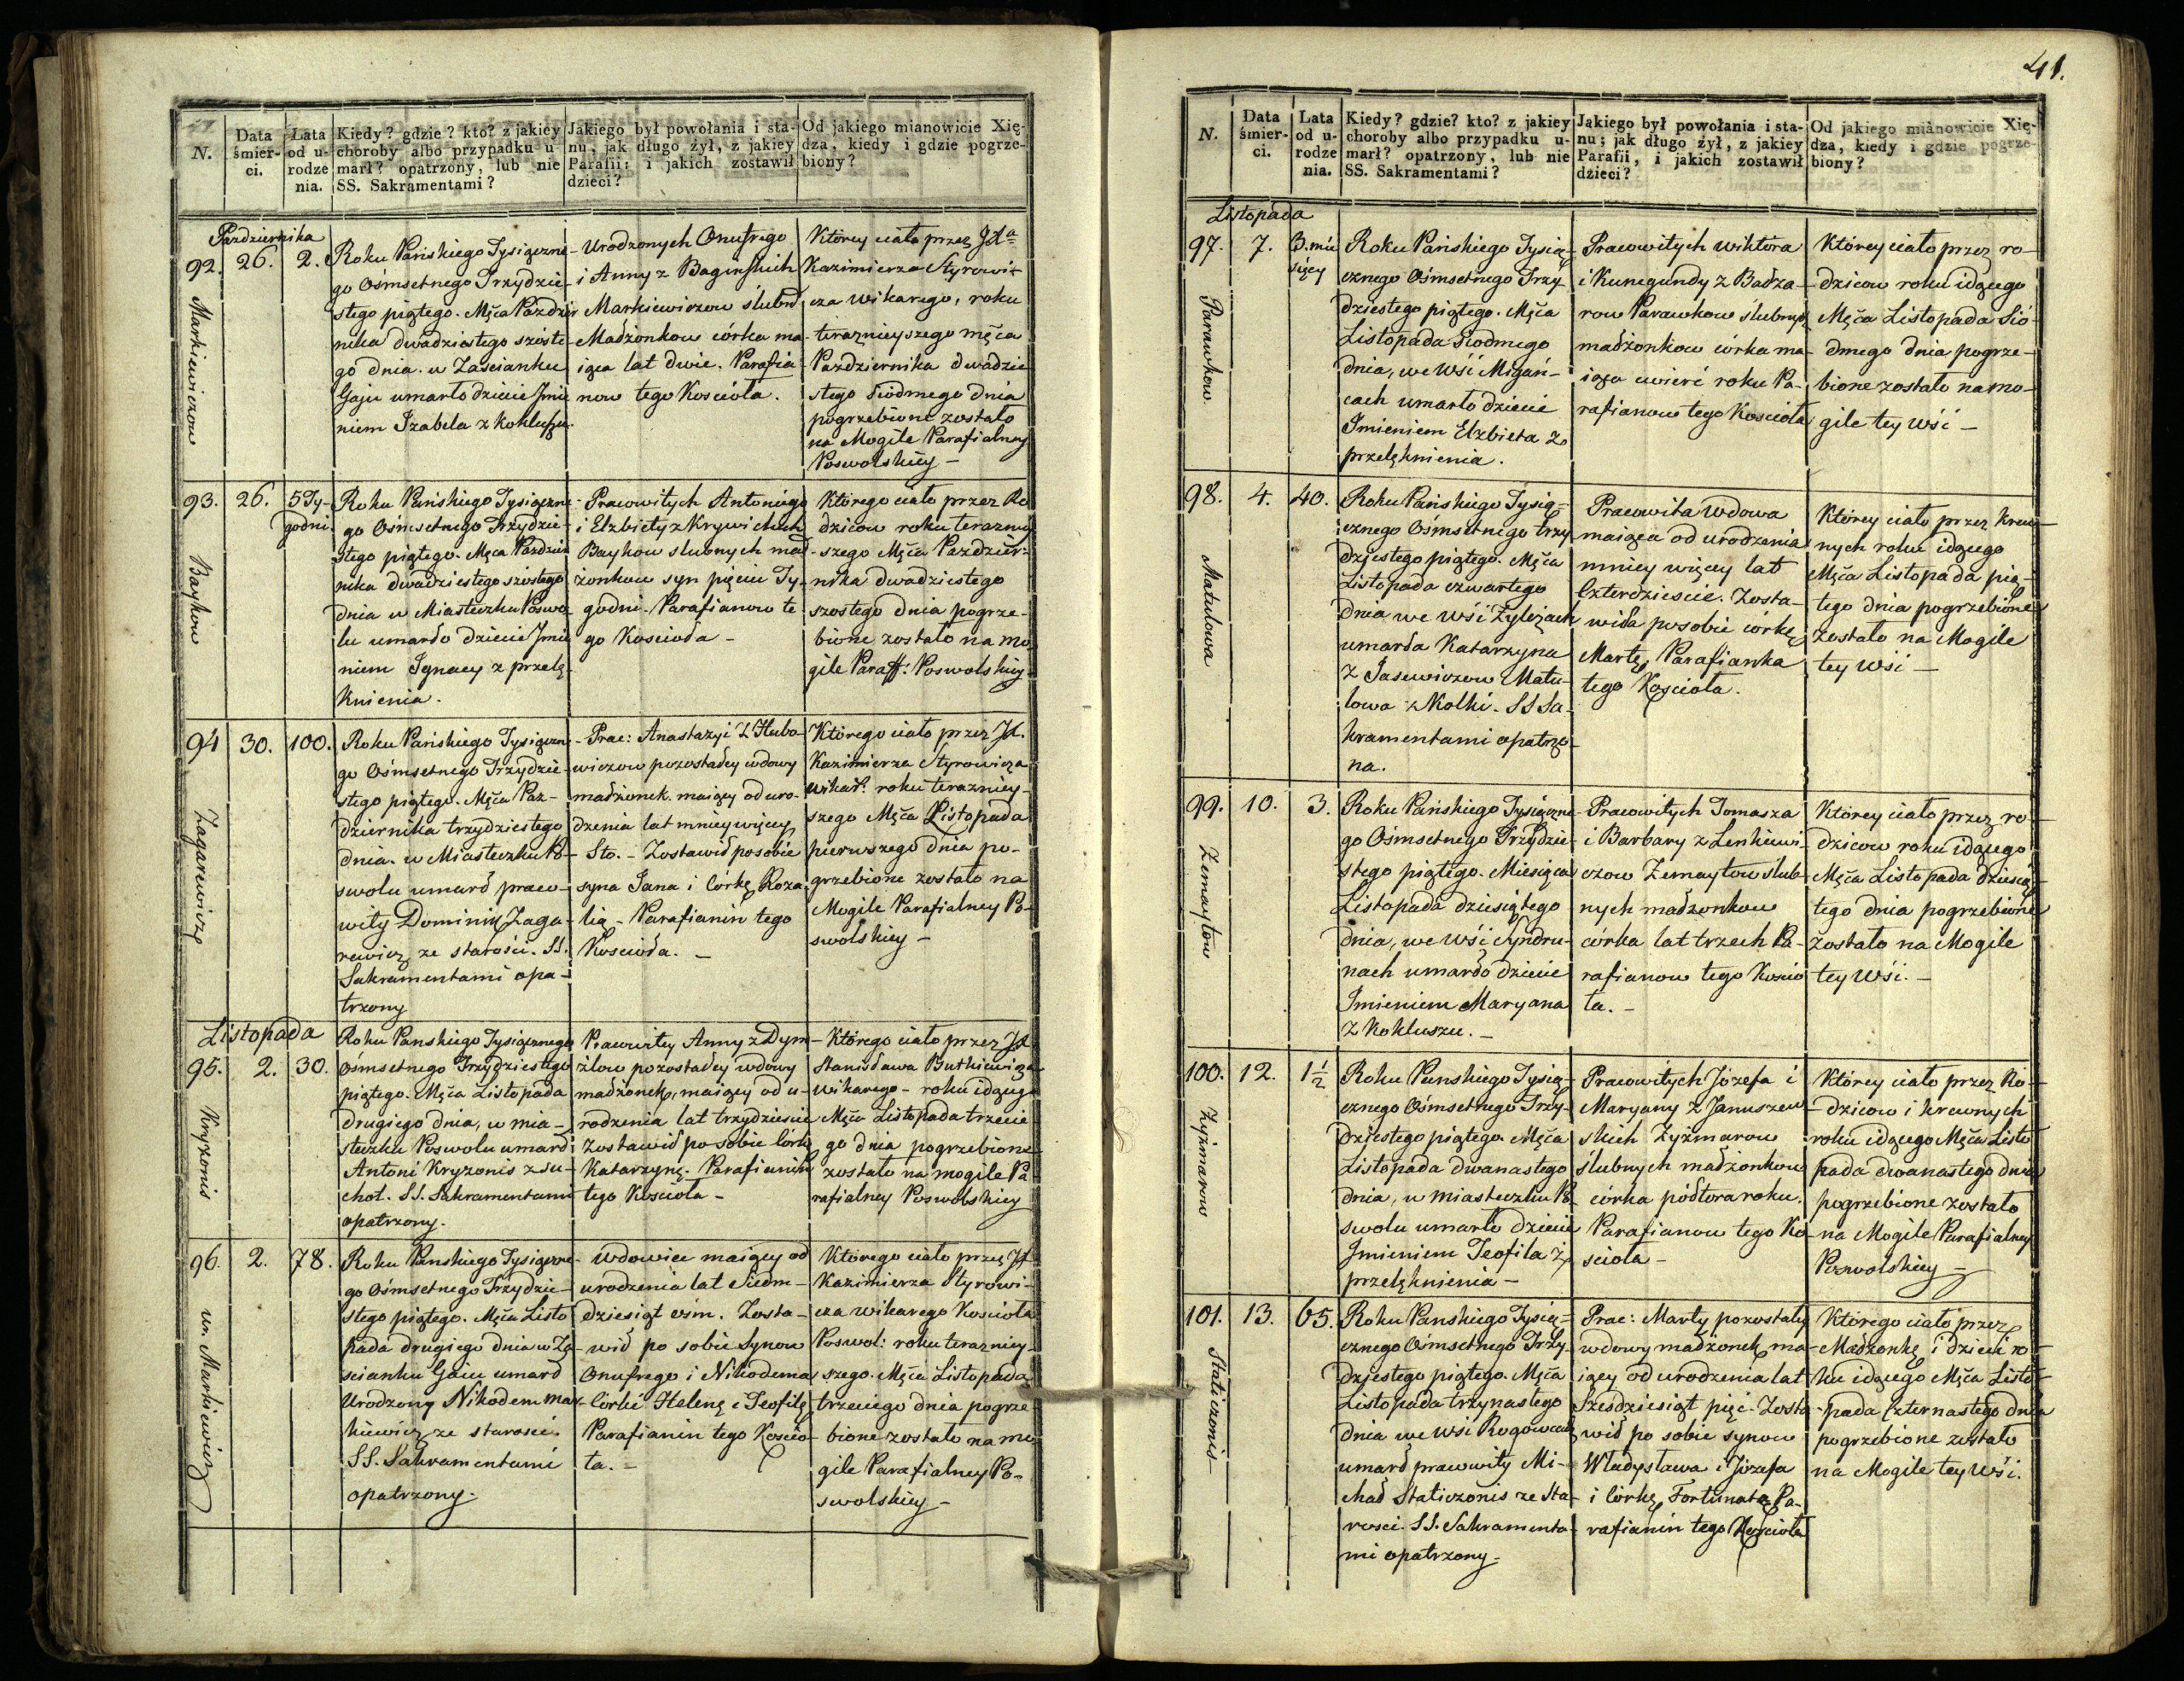 N.
Data śmier-
ci.
Lata
od u-
rodze
nia.
Kiedy? gdzie? kto? z jakiey
choroby albo przypadku u-
marł? opatrzony, lub nie
SS. Sakramentami?
Jakiego był powołania i sta-
nu, jak długo żył, z jakiey
Parafii; i jakich zostawił
dzieci?
Od jakiego mianowicie Xię-
dza, kiedy i gdzie pogrze-
biony?
Pazdziernika
92.
26.
2.
Markiewiczow
Roku Pańskiego Tysiączne-
go Ośmsetnego Trzydzie-
stego piątego. Męca Paździer
nika dwadziestego szoste-
go dnia. w Zascianku
Gaju umarło dziecie Jmie
niem Izabela z kokluszu.
Urodzonych Onufrego
i Anny z Baginskich
Markiewiczow ślubn
Małżonkow córka ma-
iąca lat dwie. Parafia
now tego Kościoła.
Którey ciało przez JX
Kazimierza Styrowi-
cza wikarego, roku
teraznieyszego męca
Pazdziernika dwadzie
stego siodmego dnia
pogrzebione zostało
na Mogile Parafialney
Poswolskiey -
93.
26.
5 Ty-
godni
Baykow
Roku Pańskiego Tysiączne-
go Ośmsetnego Trzydzie-
stego piątego. Męca Pazdzier
nika dwadziestego szóstego
dnia w Miasteczku Poswo
lu umarło dziecie Jmie
niem Ignacy z przelę-
knienia.
Pracowitych Antoniego
i Elzbiety z Krywickich
Baykow slubnych mał-
żonkow syn pięciu Ty-
godni. Parafianow te
go Kosciola -
Którego ciało przez Ro
dzicow roku terazniey
szego Męca Pazdzier-
nika dwadziestego
szostego dnia pogrze-
bione zostało na mo
gile Paraff: Poswolskiey
94
30.
100.
Zagarewicz
Roku Pańskiego Tysiączne-
go Ośmsetnego Trzydzie-
stego piątego. Męca Paz-
dziernika trzydziestego
dnia. w Miasteczku Po-
swolu umarł praco-
wity Dominik Zaga-
rewicz ze starości. SS.
Sakramentami opa-
trzony
Prac: Anastazyi z Hubo-
wiczow pozostałey wdowy
małżonek maiący od uro-
dzenia lat mniey więcey
Sto. - Zostawił posobie
syna Jana i Córkę Roza
lią - Parafianin tego
Kosciola. -
Którego ciało przez JX.
Kazimierza Styrowicza
wikar: roku terazniey-
szego Męca Listopada
pierwszego dnia po-
grzebione zostało na
Mogile Parafialney Po-
swolskiey -
Listopada
95.
2.
30.
Kryzonis
Roku Panskiego Tysiącznego
Ośmsetnego Trzydziestego
piątego. Męca Listopada
drugiego dnia, w mia-
steczku Poswolu umarł
Antoni Kryzonis z su-
chot. SS. Sakramentami
opatrzony.
Pracowitey Anny z Dym-
żlow pozostałey wdowy
małżonek, maiący od u-
rodzenia lat trzydziescie
Zostawił po sobie Córkę
Katarzynę. Parafianin
tego Kościoła -
Którego ciało przez JX
Stanisława Butkiewicza
wikarego - roku idącego
Męca Listopada trzecie
go dnia pogrzebione
zostało na mogile Pa
rafialney Poswolskiey
96.
2.
78.
ur. Markiewicz
Roku Panskiego Tysiączne-
go Ośmsetnego Trzydzie-
stego piątego. Męca Listo
pada drugiego dnia w Za
scianku Gaju umarł
Urodzony Nikodem Mar
kiewicz ze starosci.
SS. Sakramentami
opatrzony.
Wdowiec maiący od
urodzenia lat Siedm-
dziesiąt ośm. Zosta-
wił po sobie Synow
Onufrego i Nikodema
Córki Helenę i Teofilę
Parafianin tego Koscio
ła. -
Którego ciało przez JX
Kazimierza Styrowi-
cza wikarego Kościoła
Poswol: roku terazniey-
szego Męca Listopada
trzeciego dnia pogrze
bione zostało na mo
gile Parafialney Po-
swolskiey -
41.
N.
Data
śmier-
ci.
Lata
od u-
rodze
nia.
Kiedy? gdzie? kto? z jakiey
choroby albo przypadku u-
marł? opatrzony, lub nie
SS. Sakramentami?
Jakiego był powołania i sta-
nu; jak długo żył, z jakiey
Parafii, i jakich zostawił
dzieci?
Od jakiego mianowicie Xię-
dza, kiedy i gdzie pogrze-
biony?
Listopada
97.
7.
3. mie
sięcy
Parawkow
Roku Pańskiego Tysią-
cznego Ośmsetnego Trzy-
dziestego piątego. Męca
Listopada Siodmego
dnia, we Wśi Migań-
cach umarło dziecie
Imieniem Elzbieta z
przelęknienia.
Pracowitych Wiktora
i Kunegundy z Badza-
row Parawkow ślubnych
małżonkow córka ma-
iąca ćwierć roku Pa-
rafianow tego Kościoła
Którey ciało przez ro-
dzicow roku idącego
Męca Listopada Sió-
dmego dnia pogrze-
bione zostało na mo-
gile tey Wśi -
98.
4.
40.
Matulowa
Roku Pańskiego Tysią-
cznego Ośmsetnego trzy-
dziestego piątego. Męca
Listopada czwartego
dnia we Wśi Zyleyach
umarła Katarzyna
z Jasewiczow Matu-
lowa z Kolki. SS Sa-
kramentami opatrzo-
na.
Pracowita Wdowa
maiąca od urodzenia
mniey więcey lat
Czterdziescie. Zosta-
wiła posobie córkę
Martę, Parafianka
tego Kościoła.
Którey ciało przez krew-
nych roku idącego
Męca Listopada pią-
tego dnia pogrzebione
zostało na Mogile
tey Wśi -
99.
10.
3.
Zemaytow
Roku Pańskiego Tysiączne-
go Ośmsetnego Trzydzie-
stego piątego. Miesiąca
Listopada dziesiątego
dnia, we Wśi Syndru-
nach umarło dziecie
Imieniem Maryana
z Kokluszu. -
Pracowitych Tomasza
i Barbary z Lenkiewi-
czow Zemaytow ślub-
nych małżonkow
córka lat trzech Pa-
rafianow tego Koscio
ła. -
Którey ciało przez ro-
dzicow roku idącego
Męca Listopada dziesią-
tego dnia pogrzebione
zostało na Mogile
tey Wśi. -
100.
12.
1 1/2
Zyżmarow
Roku Panskiego Tysią-
cznego Ośmsetnego Trzy-
dziestego piątego. Męca
Listopada dwanastego
dnia, w miasteczku Po
swolu umarło dziecie
Imieniem Teofila z
przelęknienia -
Pracowitych Józefa i
Maryany z Januszew
skich Zyżmarow
ślubnych małżonkow
córka półtora roku.
Parafianow tego Ko-
scioła -
Którey ciało przez Ro-
dzicow i krewnych
roku idącego Męca Listo
pada dwanastego dnia
pogrzebione zostało
na Mogile Parafialney
Poswolskiey -
101.
13.
65.
Staticzonis -
Roku Panskiego Tysią-
cznego Ośmsetnego Trzy-
dziestego piątego. Męca
Listopada trzynastego
dnia we Wśi Rogowcach
umarł pracowity Mi-
chał Staticzonis ze Sta-
rosci. SS. Sakramenta-
mi opatrzony -
Prac: Marty pozostałey
wdowy małżonek, ma-
iący od urodzenia lat
Sześdziesiąt pięć. Zosta
wił po sobie synow
Władysława i Józefa
i Córkę Fortunatę Pa-
rafianin tego Kościoła
Którego ciało przez
Małżonkę i dzieci ro-
ku idącego Męca Listo-
pada Czternastego dnia
pogrzebione zostało
na Mogile tey Wśi.